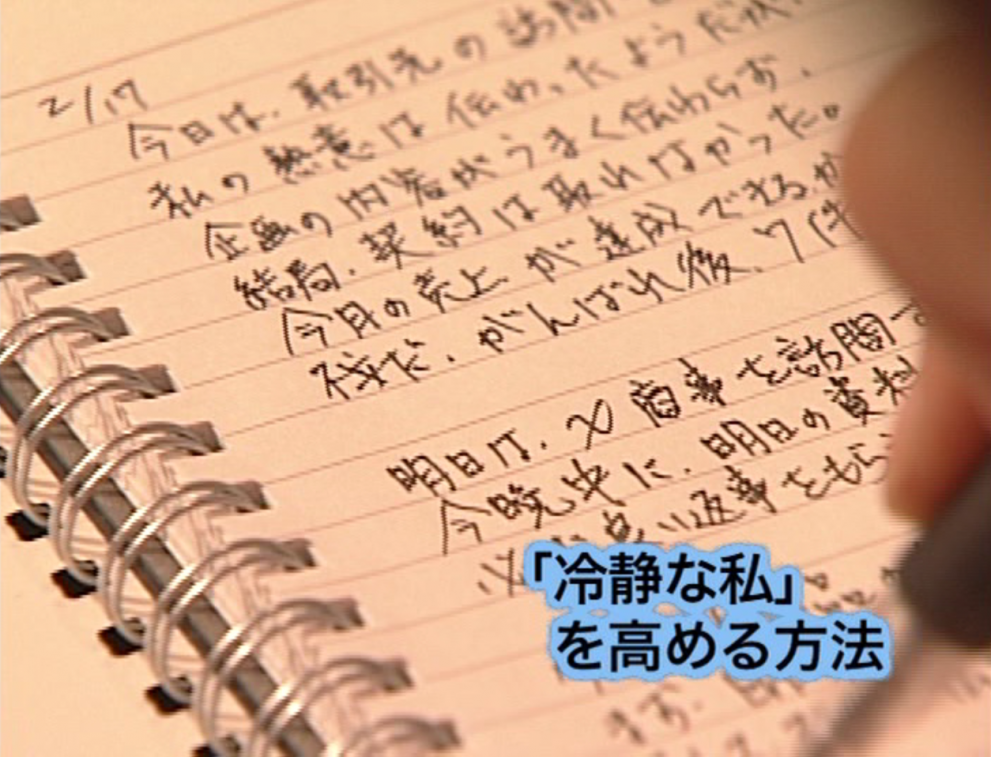 2/17
今日は、取引先の訪問
私の熱意は伝わったようだが、
企画の内容がうまく伝わらず、
結局、契約は取れなかった。
今月の売上が達成できるか
不安だ。がんばれ後、7件
明日は、〆商事を訪問す
今晩中に、明日の資料
必ず良い返事をもら
「冷静な私」
を高める方法
ます。明